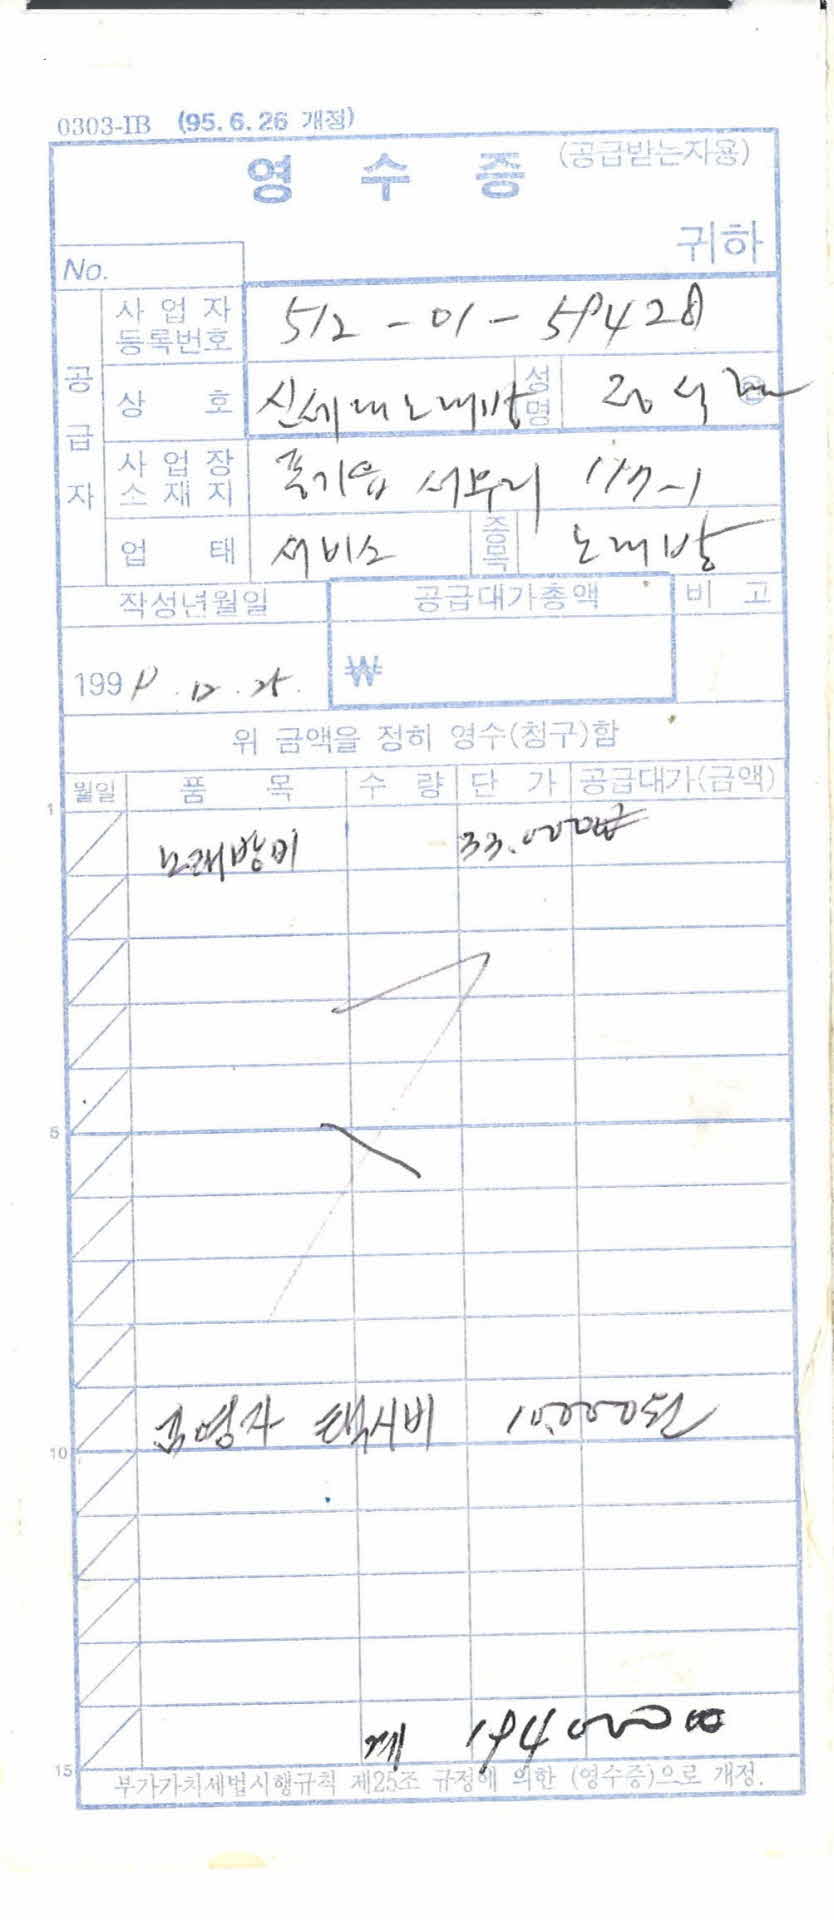 0303-IB (95.6.26 개정)
영 수 증 (공급받는자용)
귀하
No.
공급자
사업자등록번호 512-01-59428
상 호 신세대노래방 성명 ㊞
사업장소재지 풍기읍 서부리 117-1
업 태 서비스 종목 노래방
작성년월일 공급대가총액 비 고
1999. 12. 25. ₩
위 금액을 정히 영수(청구)함
월일 품 목 수 량 단 가 공급대가(금액)
1
노래방비 33.000
5
택시비 10,000원
10
계 194000
15
부가가치세법시행규칙 제25조 규정에 의한 (영수증)으로 개정.